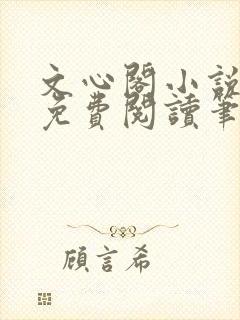 文心閣小說
免費閱讀筆
顧言希